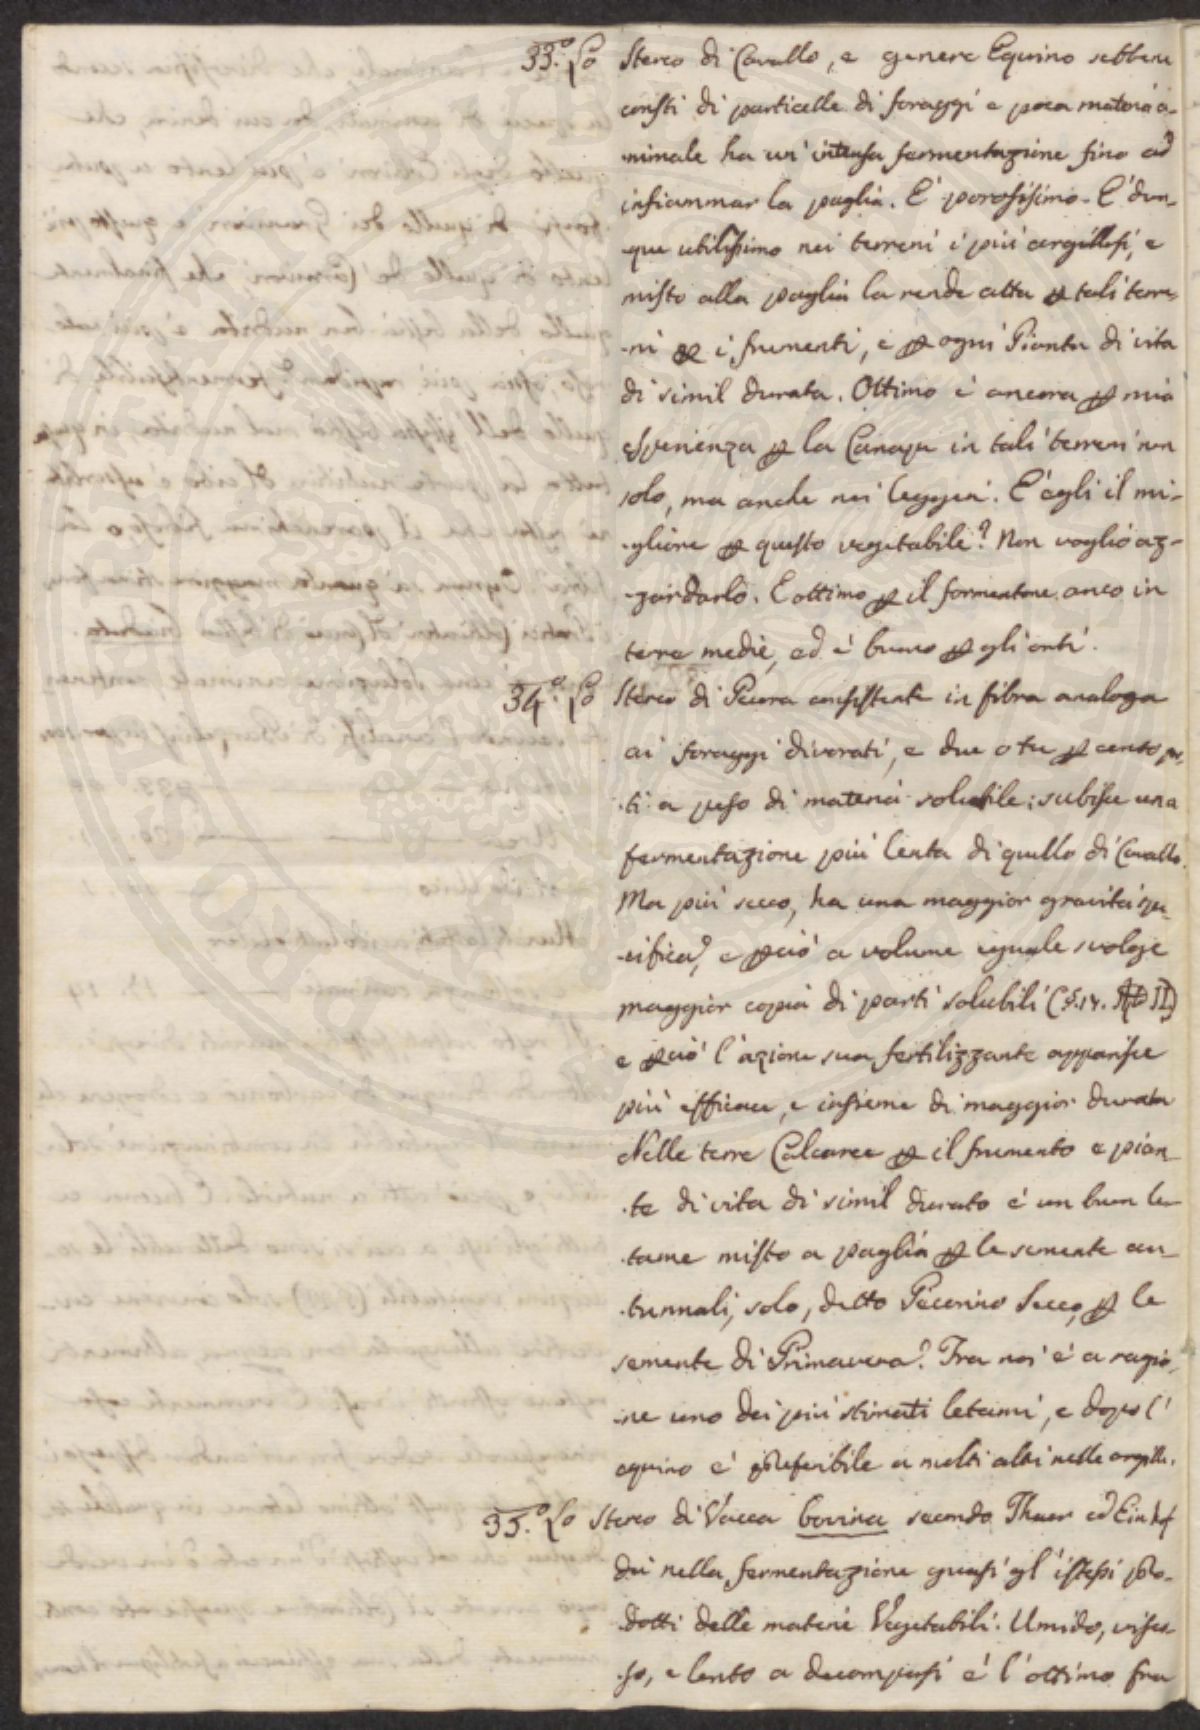 33.° Lo Sterco di Cavallo, e genere Equino sebbene
consti di particelle di foraggi e poca materia a-
-nimale ha un' intensa fermentazione fino ad
infiammar la paglia. E' porosissimo. E' dun-
-que utilissimo nei terreni i più argillosi, e
misto alla paglia la rende atta p tali terre-
-ni p i frumenti, e p ogni Pianta di vita
di simil durata. Ottimo è ancora p mia
esperienza p la Canapa in tali terreni non
solo, ma anche nei leggeri. E' egli il mi-
-gliore p questo vegetabile? Non voglio az-
-zardarlo. E ottimo p il formentone anco in
terre medie, ed è buono p gli orti.
34.° Lo Sterco di Pecora consistente in fibra analoga
ai foraggi divorati, e due o tre p cento par-
-ti a peso di materia solubile: subisce una
fermentazione più lenta di quello di Cavallo.
Ma più secco, ha una maggior gravità spe-
-cifica, e pciò a volume eguale svolge
maggior copia di parti solubili (§. 14. II)
e pciò l'azione sua fertilizzante apparisce
più efficace, e insieme di maggior durata
Nelle terre Calcaree p il frumento e pian-
-te di vita di simil durata è un buon le-
-tame misto a paglia p le semente au-
-tunnali, solo, detto Pecorino Secco, p le
semente di Primavera. Tra noi è a ragio-
-ne uno dei più stimati letami, e dopo l'
equino è preferibile a molti altri nelle argille.
35.° Lo Sterco di Vacca bovina secondo Thaer ed Einhof
dà nella fermentazione quasi gl'istessi pro-
-dotti delle materie Vegetabili. Umido, visco-
-so, e lento a decomporsi è l'ottimo fra